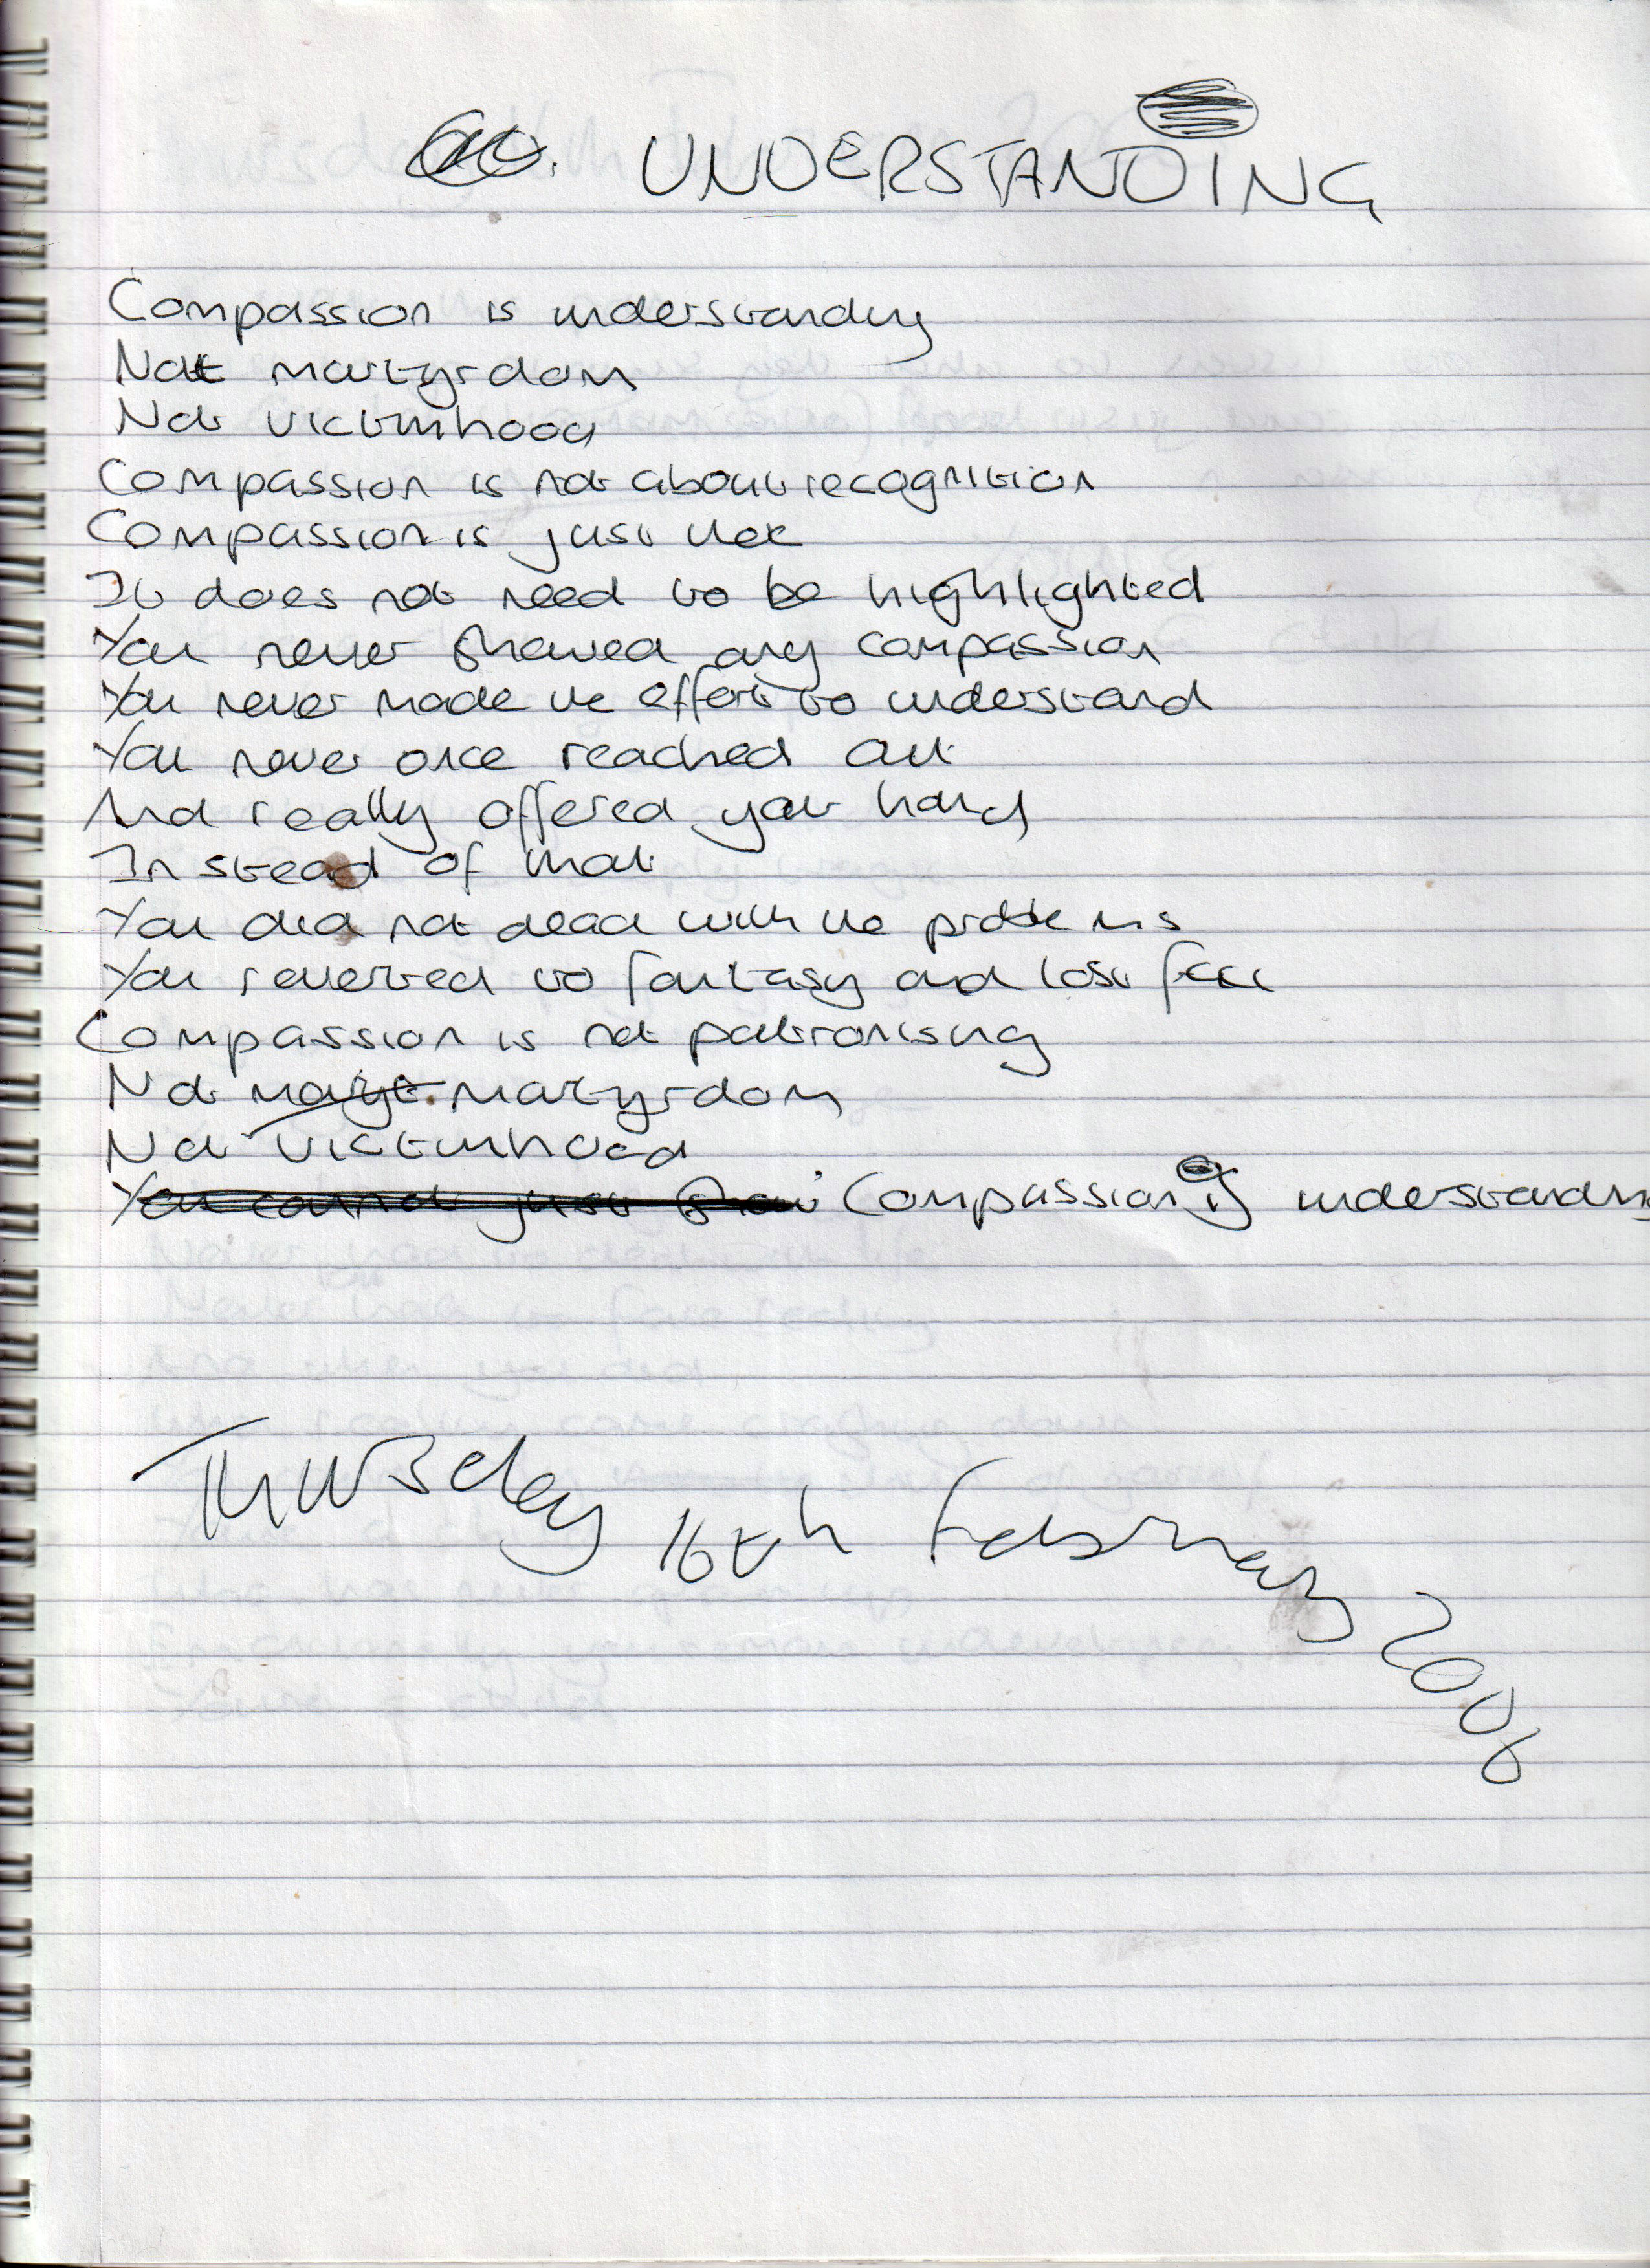 UNDERSTANDING
Compassion is understanding
Not martyrdom
Not victimhood
Compassion is not about recognition
Compassion is just
It does not need to be highlighted
You never showed any compassion
You never made the effort to understand
You never once reached out
And really offered your hand
Instead of that
You did not deal with the problems
You reverted to fantasy and lost face
Compassion is not patronising
Not martyrdom
Not victimhood
You cannot just show Compassion is understanding
Thursday 16th February 2006